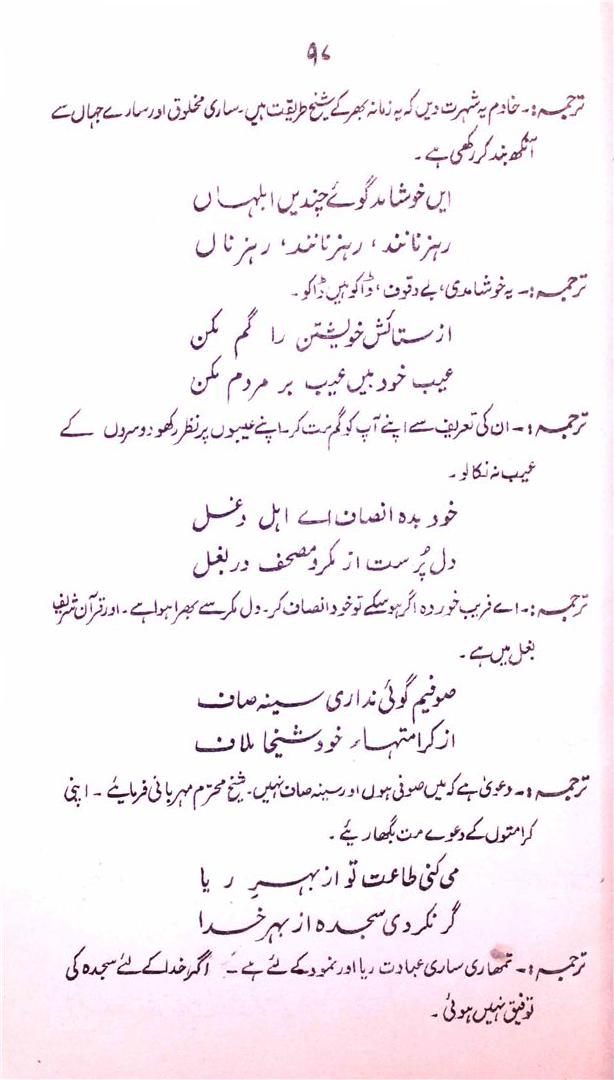 ۹۸
ترجمہ:۔ خادم یہ شہرت دیں کہ یہ زمانہ بھر کے شیخ طریقت ہیں۔ ساری مخلوق اور سارے جہاں سے
آنکھ بند کر رکھی ہے۔
ایں خوشامد گوئے چندیں ابلہاں
رہزنانند، رہزنانند، رہزناں
ترجمہ:۔ یہ خوشامدی، بے وقوف، ڈاکو ہیں ڈاکو۔
از ستائش خویشتن را گم مکن
عیب خود بیں عیب بر مردم مکن
ترجمہ:۔ ان کی تعریف سے اپنے آپ کو گم مت کر۔ اپنے عیبوں پر نظر رکھو دوسروں کے
عیب نہ نکالو۔
خود بدہ انصاف اے اہل دغل
دل پُرست از مکر و مصحف در بغل
ترجمہ:۔ اے فریب خوردہ اگر ہو سکے تو خود انصاف کر۔ دل مکر سے بھرا ہوا ہے۔ اور قرآن شریف
بغل میں ہے۔
صوفیم گوئی نداری سینہ صاف
از کرامتہاء خود شیخا ملاف
ترجمہ:۔ دعویٰ ہے کہ میں صوفی ہوں اور سینہ صاف نہیں۔ شیخ محترم مہربانی فرمائیے۔ اپنی
کرامتوں کے دعوے مت بگھاریئے۔
می کنی طاعت تو از بہرِ ریا
گر نکردی سجدہ از بہر خدا
ترجمہ:۔ تمھاری ساری عبادت ریا اور نمود کے لئے ہے۔ اگر خدا کے لئے سجدہ کی
توفیق نہیں ہوئی۔